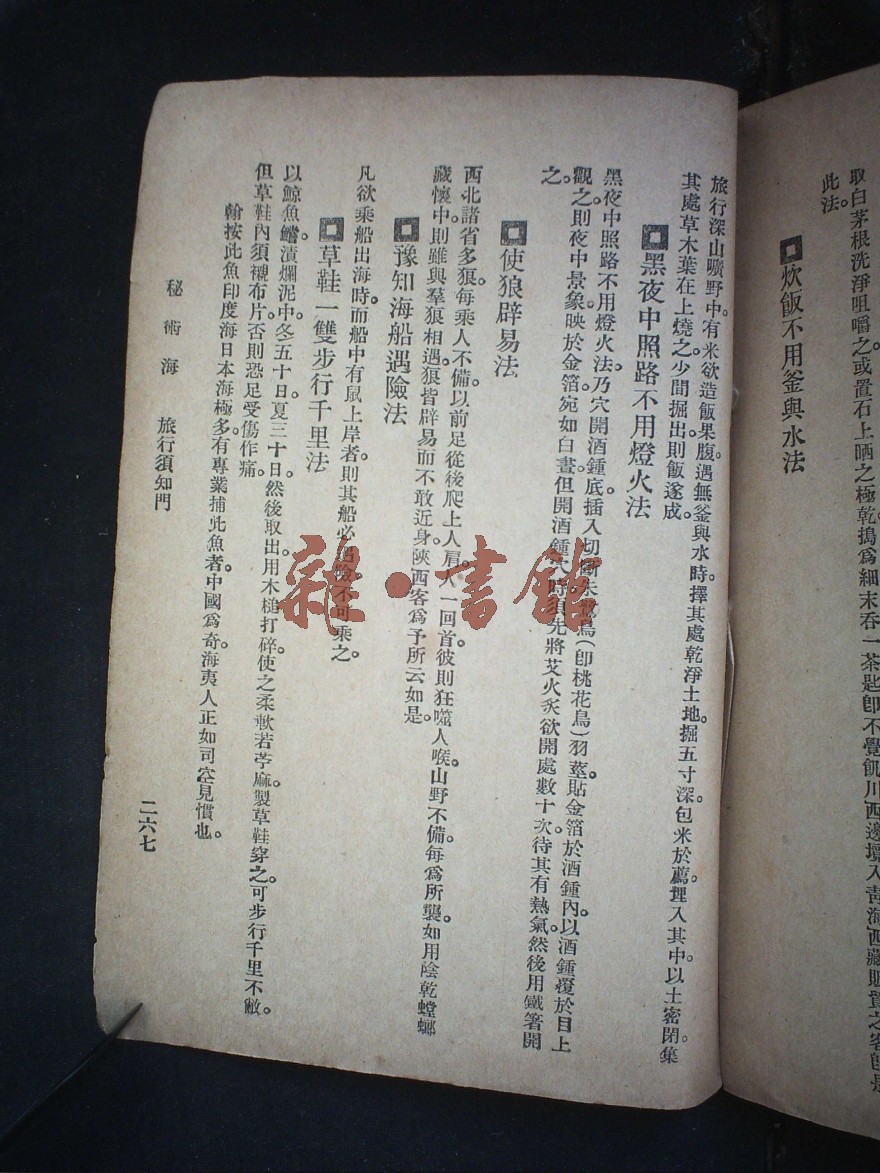 取白茅根洗淨咀嚼之。或置石上晒之極乾搗爲細末吞一茶匙卽不覺飢川西邊壩入靑海西藏
此法。
炊飯不用釜與水法
旅行深山曠野中。有米欲造飯果腹。遇無釜與水時擇其處乾淨土地。掘五寸深包米於薦。埋入其中。以土密閉集
其處草木葉在上燒之。少間掘出則飯遂成
黑夜中照路不用燈火法
黑夜中照路不用燈火法。乃穴開酒鍾底插入切斷朱鷺鳥(卽桃花鳥)羽莖。貼金箔於酒鍾內。以酒鍾覆於目上
觀之。則夜中景象映於金箔。宛如白晝。但開酒鍾穴時須先將艾火炙欲開處數十次。待其有熱氣。然後用鐵箸開
之。
使狼辟易法
西北諸省多狼。每乘人不備。以前足從後爬上人肩。人一回首。彼則狂噬人喉。山野不備。每爲所襲。如用陰乾螳螂
藏懷中。則雖與羣狼相遇。狼皆辟易而不敢近身。陝西客爲予所云如是。
豫知海船遇險法
凡欲乘船出海時。而船中有鼠上岸者。則其船必遇險不可乘之。
草鞋一雙步行千里法
以鯨魚鰭漬爛泥中。冬五十日。夏三十日。然後取出。用木槌打碎。使之柔軟若苧麻。製草鞋穿之。可步行千里不敝。
但草鞋內須襯布片。否則恐足受傷作痛。
翰按此魚印度海日本海極多。有專業捕此魚者。中國爲奇。海夷人正如司空見慣也。
秘術海 旅行須知門 二六七
雜·書館